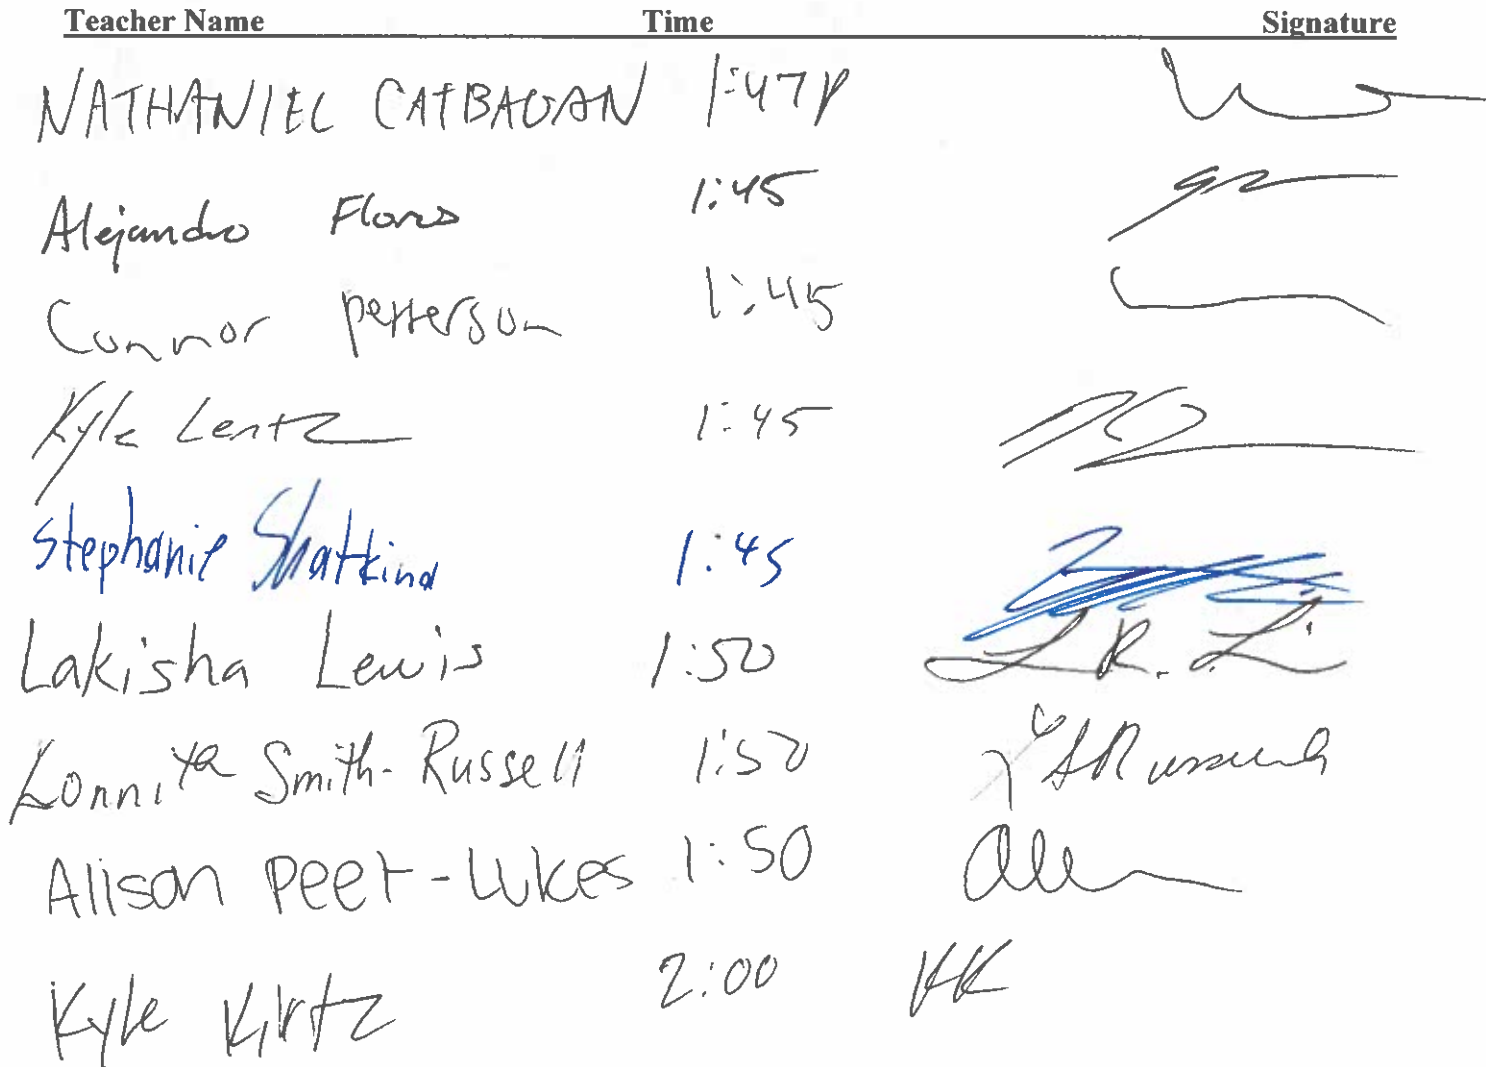 Teacher Name Time Signature
NATHANIEL CATBAGAN 1:47P
Alejandro Flores 1:45
Connor petterson 1:45
Kyle Lentz 1:45
Stephanie Shatkind 1:45
Lakisha Lewis 1:50 L R. L
Lonnita Smith-Russell 1:50
Alison Peet-Lukes 1:50
Kyle Kirtz 2:00 KK